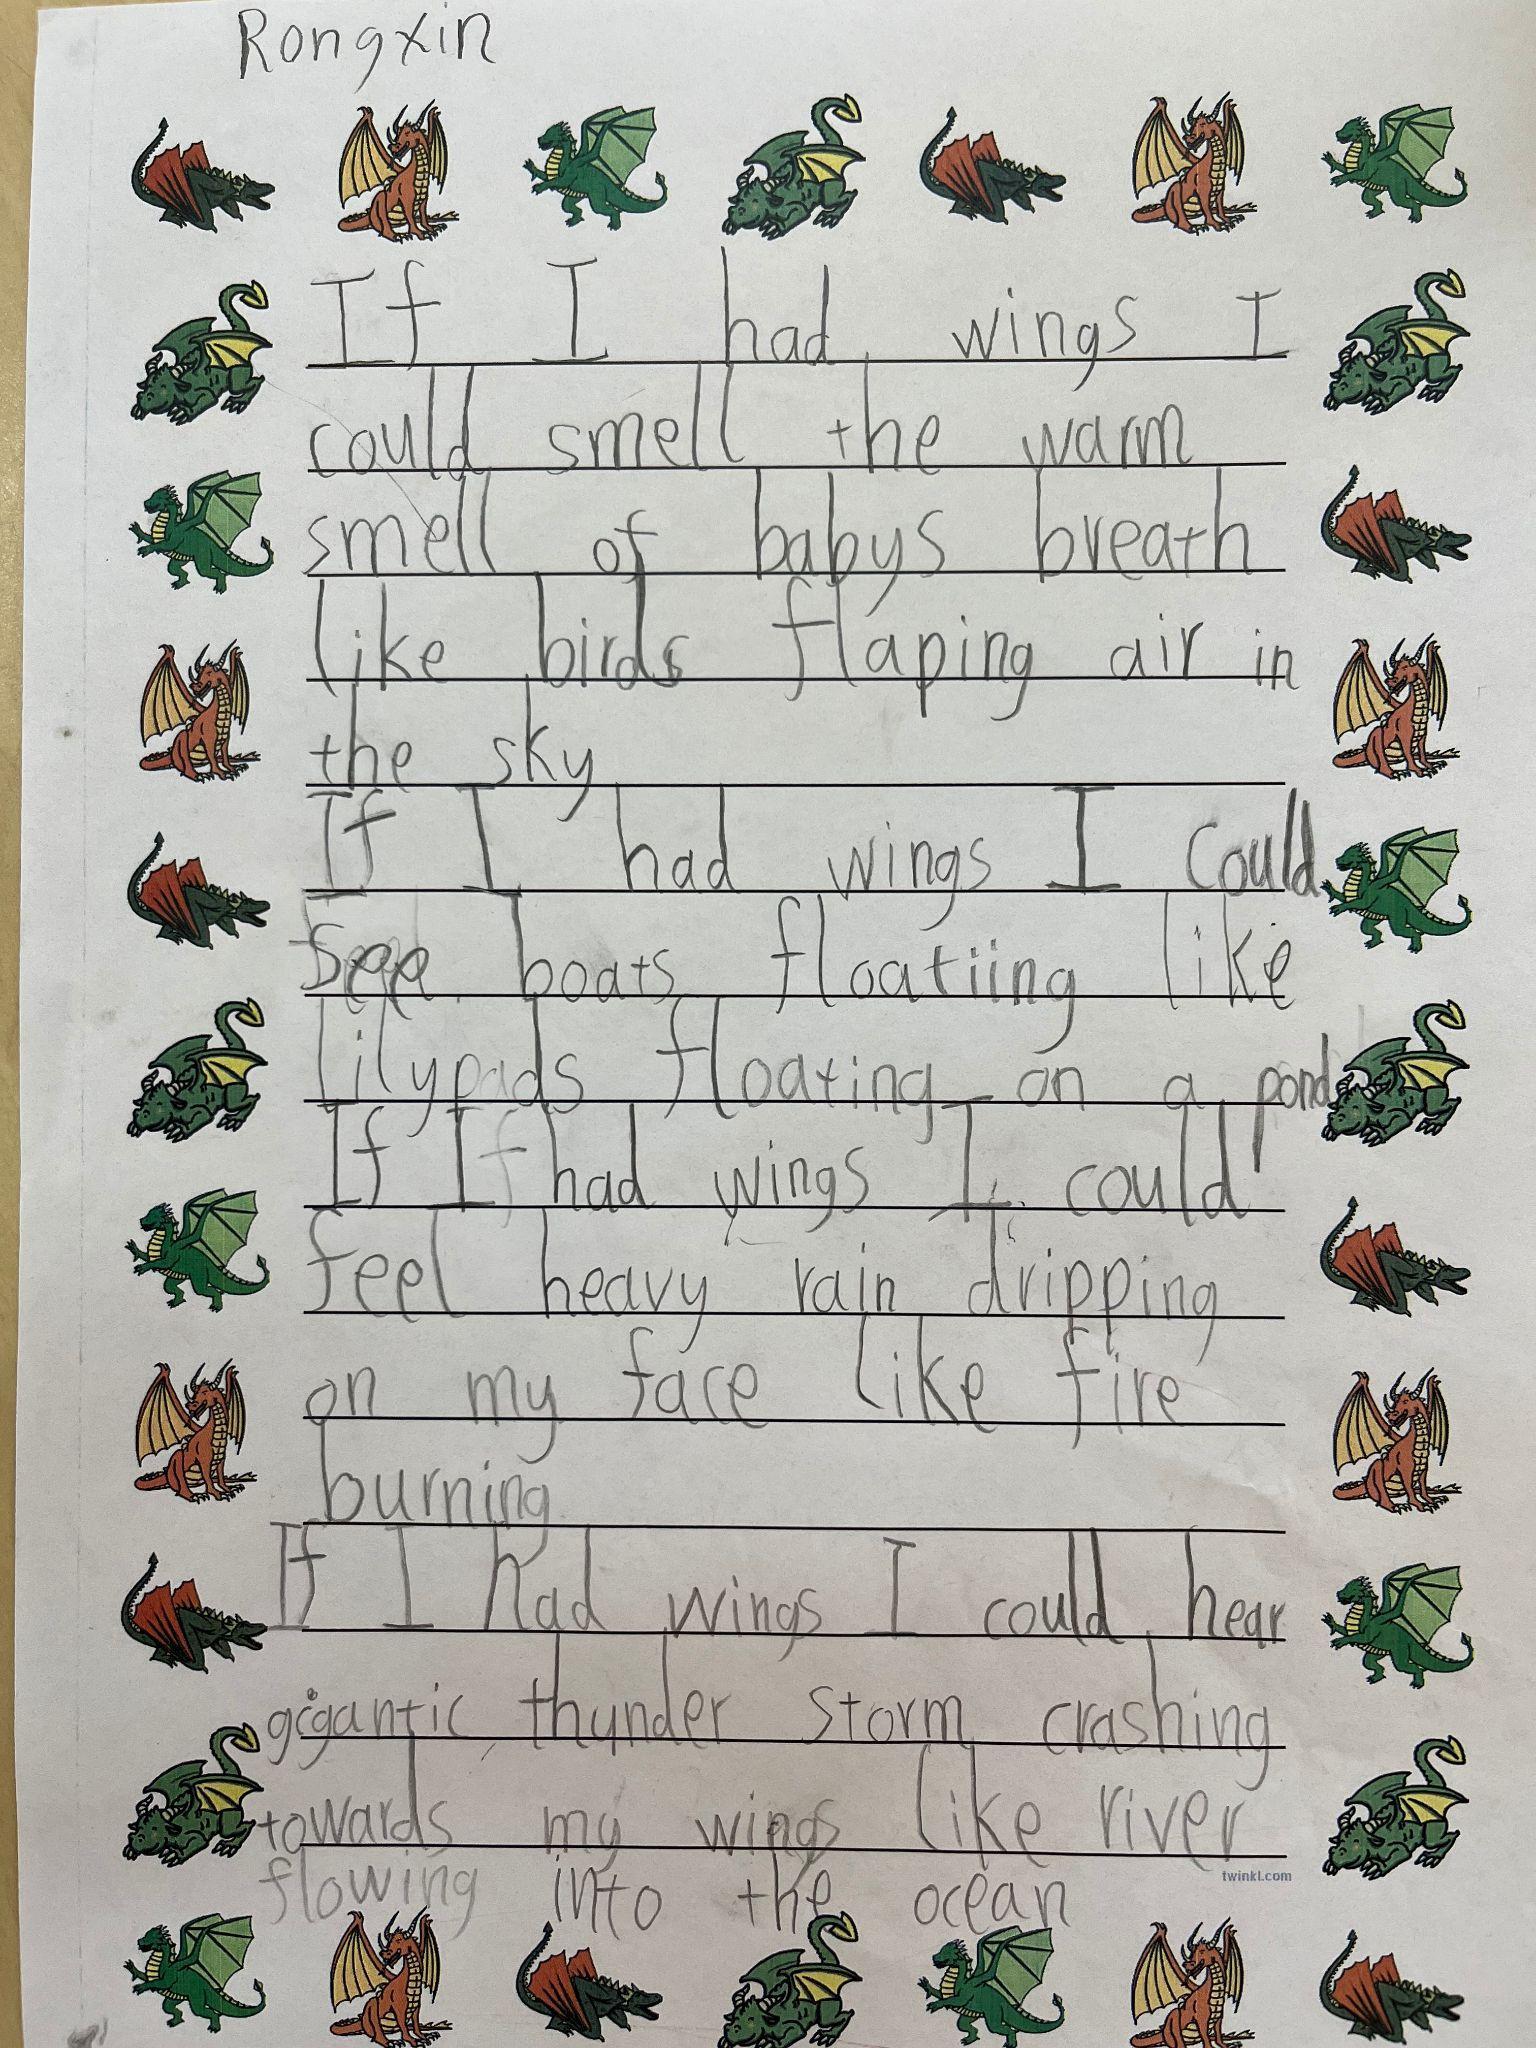 Rongxin
If I had wings I
could smell the warm
smell of babys breath
like birds flaping air in
the sky
If I had wings I could
see boats floatiing like
lilypads floating on a pond
If I had wings I could
feel heavy rain dripping
on my face like fire
burning
If I had wings I could hear
gigantic thunder storm crashing
towards my wings like river
twinkl.com
flowing into the ocean